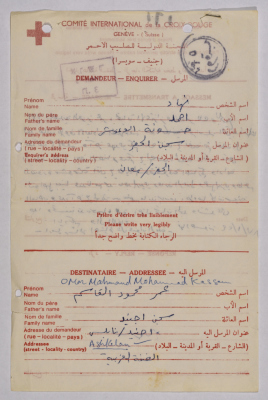 COMITÉ INTERNATIONAL DE LA CROIX-ROUGE
GENÈVE - (Suisse)
اللجنة الدولية للصليب الأحمر
(جنيف - سويسرا)
DEMANDEUR - ENQUIRER - المرسل
Prénom
Name
نهاد
اسم الشخص
Nom du père
Father's name
احمد
اسم الأب
Nom de famille
Family name
اسم العائلة
Adresse du demandeur
(rue - localité - pays)
سجن الجفر
عنوان المرسل
Enquirer's address
(street - locality - country)
الجفر / معان
(الشارع - القرية أو المدينة - البلاد)
Prière d'écrire très lisiblement
Please write very legibly
الرجاء الكتابة بخط واضح جداً
DESTINATAIRE - ADDRESSEE - المرسل اليه
Omar Mahmoud Mohammed Kassem
Prénom
Name
عمر محمود القاسم
اسم الشخص
Nom du père
Father's name
اسم الأب
Nom de famille
Family name
سجن
اسم العائلة
Adresse du demandeur
(rue - localité - pays)
عنوان المرسل اليه
Addressee
(street - locality - country)
Ashkalan
(الشارع - القرية أو المدينة - البلاد)
الضفة الغربية